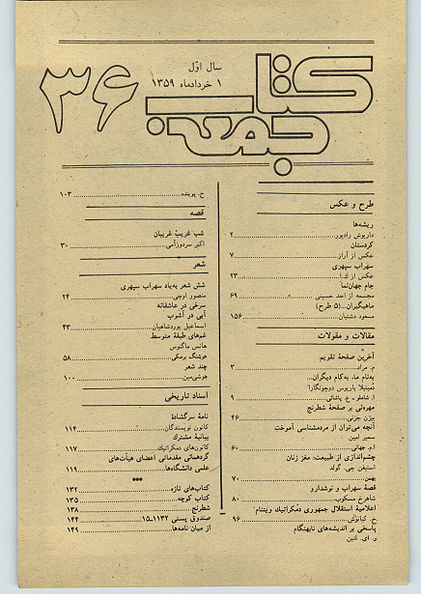 کتاب جمعه
۳۶
سال اوّل
۱ خردادماه ۱۳۵۹
طرح و عکس
ریشه‌ها
داریوش رادپور ۲
کردستان
عکس از آراز ۷
سهراب سپهری
عکس از ک.ا. ۲۳
جام جهان‌نما
مجسمه از احد حسینی ۶۹
ماهیگیران...(۵ طرح)
مسعود دشتبان ۱۵۶
مقالات و مقولات
آخرین صفحهٔ تقویم
م. مراد ۳
به‌نام ما، به‌کام دیگران...
دُمیتیلا باریوس دوچونگارا
ا. شاملو - ع. پاشائی ۹
مهره‌ئی بر صفحهٔ شطرنج
بیژن جزنی ۴۶
آنچه می‌توان از مردمشناسی آموخت
سمیر امین
ا.م. جهانی ۶۰
چشم‌اندازی از طبیعت: مغز زنان
استیفن جی. گولد
بهمن ۷۰
قصهٔ سهراب و نوشدارو
شاهرخ مسکوب ۸۰
اعلامیهٔ استقلال جمهوری دمکراتیک ویتنام
خ. کیانوش ۹۶
پاسخی بر اندیشه‌های نابهنگام
و. ای. لنین
ح. پوینده ۱۰۳
قصه
شب غریبِ غریبان
اکبر سردوزآمی ۳۰
شعر
شش شعر به‌یاد سهراب سپهری
منصور اوجی ۲۴
سرخی در عاشقانه
آبی در آشوب
اسماعیل نوردشاهیان ۴۳
غم‌های طبقهٔ متوسط
هانس ماگنوس
هوشنگ برمکی ۵۸
چند شعر
هوشی‌مین ۱۰۰
اسناد تاریخی
نامهٔ سرگشادهٔ
کانون نویسندگان ۱۱۴
بیانیهٔ مشترک
کانون‌های دمکراتیک ۱۱۷
گردهمائی مقدماتی اعضای هیأت‌های
علمی دانشگاه‌ها ۱۱۹
•••
کتاب‌های تازه ۱۳۲
کتاب کوچه ۱۳۵
شطرنج ۱۳۸
صندوق پستی ۱۱۳۲-۱۵ ۱۴۴
از میان نامه‌ها ۱۴۹